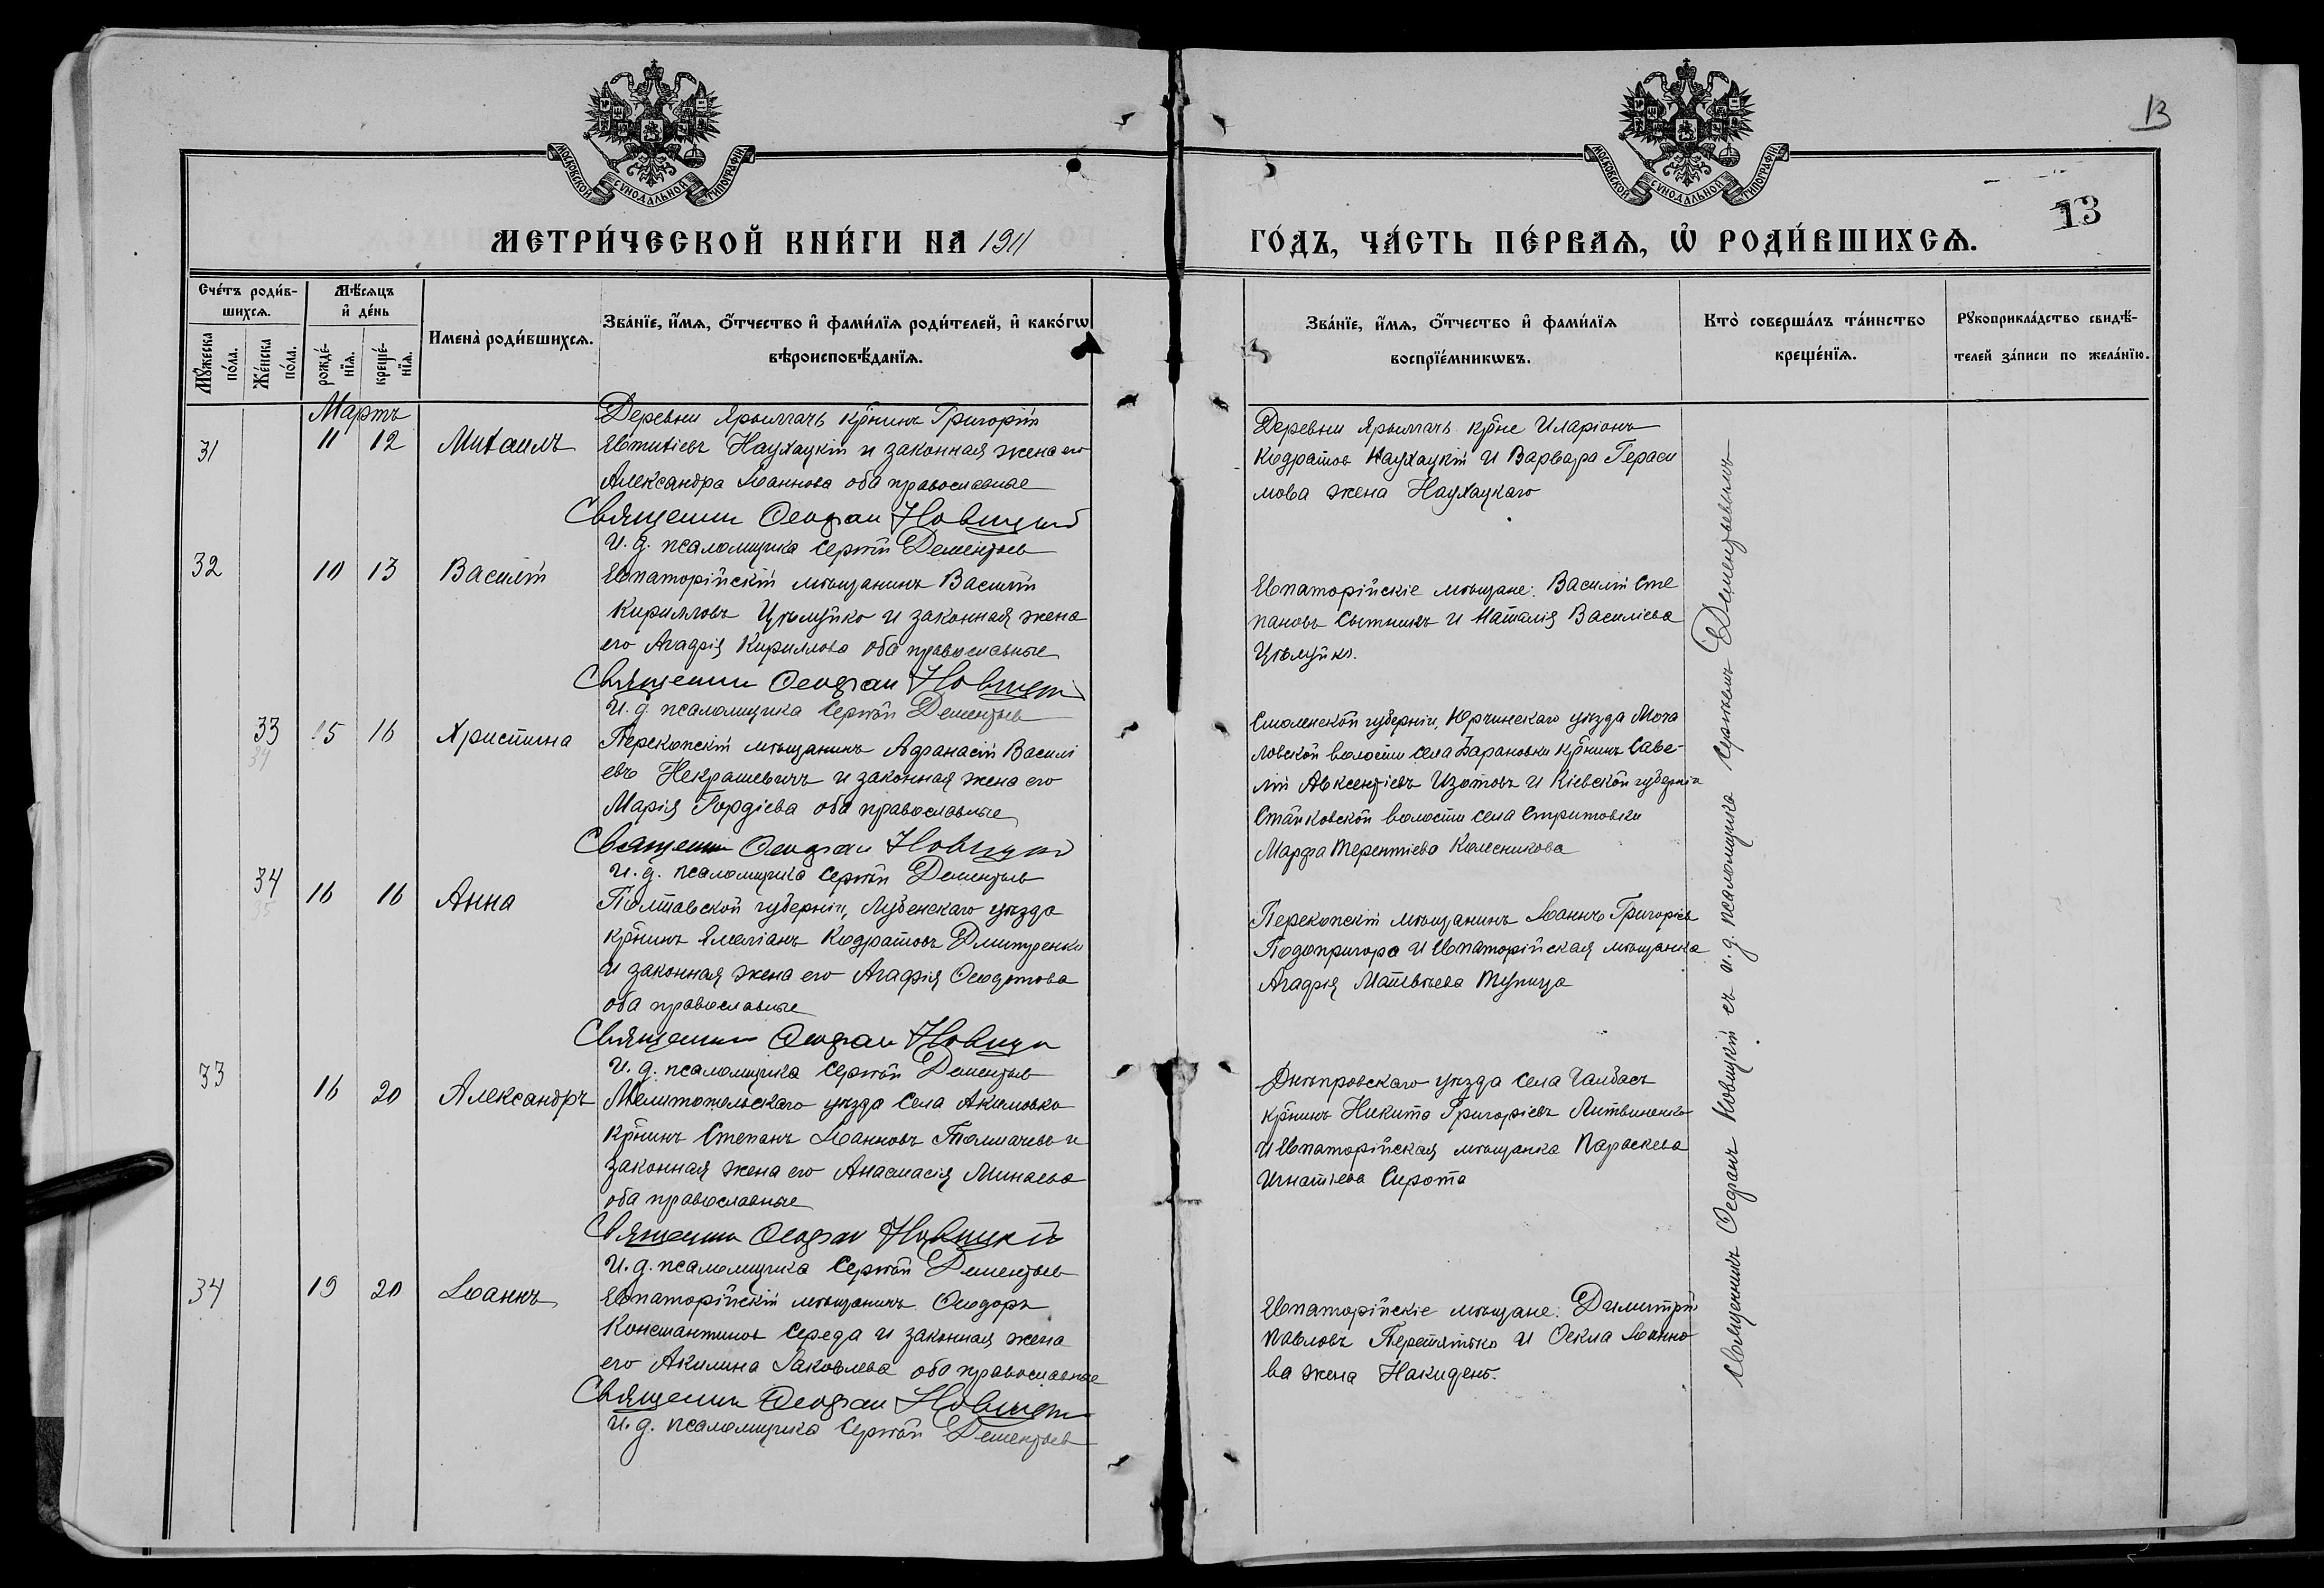 13
МОСКОВСКОЙ СѴНОДАЛЬНОЙ ТИПОГРАФІИ
МОСКОВСКОЙ СѴНОДАЛЬНОЙ ТИПОГРАФІИ
13
МЕТРИ́ЧЕСКОЙ КНИ́ГИ НА 1911
ГО́ДЪ, ЧА́СТЬ ПЕ́РВАѦ, Ѡ҆ РОДИ́ВШИХСѦ.
Сче́тъ роди́в-
шихсѧ.
Мꙋ́жеска по́ла.
Же́нска по́ла.
Мѣ́сѧцъ
и҆ де́нь
рожде́-
нїѧ.
креще́-
нїѧ.
Имена̀ роди́вшихсѧ.
Зва́нїе, и҆́мѧ, ѻ҆́тчество и҆ фами́лїѧ роди́телей, и҆ како́гѡ
вѣроисповѣ́данїѧ.
Зва́нїе, и҆́мѧ, ѻ҆́тчество и҆ фами́лїѧ
воспрїе́мникѡвъ.
Кто̀ соверша́лъ та́инство
креще́нїѧ.
Рꙋкоприкла́дство свидѣ́-
телей за́писи по жела́нїю.
Мартъ
31 11 12 Михаилъ
Деревни Ярылгачъ кр̃нинъ Григорій
Евтихіевъ Наухацкій и законная жена его
Александра Іоаннова оба православные
Священник Ѳеофан Новицкій
И. д. псаломщика Сергѣй Дементьев
Деревни Ярылгачъ кр̃не Иларіонъ
Кодратов Наухацкій и Варвара Гераси
мова жена Наухацкаго
32 10 13 Василій
Евпаторійскій мѣщанинъ Василій
Кирилловъ Цѣлуйко и законная жена
его Агафія Кириллова оба православные
Священник Ѳеофан Новицкій
И. д. псаломщика Сергѣй Дементьев
Евпаторійскіе мѣщане: Василій Сте
пановъ Сытникъ и Наталія Василіева
Цѣлуйко.
33 34 15 16 Христина
Перекопскій мѣщанинъ Афанасій Василі
евъ Некрашевичъ и законная жена его
Марія Гордіева оба православные
Священник Ѳеофан Новицкій
И. д. псаломщика Сергѣй Дементьев
Смоленской губерніи, Юрчинскаго уѣзда Моча
ловской волости села Барановки кр̃нинъ Саве-
лій Авксентіевъ Изотовъ и Кіевской губерніи
Стайковской волости села Стритовки
Марфа Терентіева Колесникова
34 35 16 16 Анна
Полтавской губерніи, Лубенскаго уѣзда
кр̃нинъ Емеліанъ Кодратовъ Дмитренко
и законная жена его Агафія Ѳеодотова
оба православные
Священник Ѳеофан Новицкій
И. д. псаломщика Сергѣй Дементьев
Перекопскій мѣщанинъ Іоаннъ Григоріев
Подопригора и Евпаторійская мѣщанка
Агафія Матвѣева Тупица
33 16 20 Александръ
Мелитопольскаго уѣзда села Акимовка
кр̃нинъ Степанъ Іоанновъ Толмачевъ и
законная жена его Анастасія Минаева
оба православные
Священник Ѳеофан Новицкій
И. д. псаломщика Сергѣй Дементьев
Днѣпровскаго уѣзда села Чалбасъ
кр̃нинъ Никита Григоріевъ Литвиненко
и Евпаторійская мѣщанка Параскева
Игнатіева Сирота
34 19 20 Іоаннъ
Евпаторійскій мѣщанинъ Ѳеодоръ
Константинов Середа и законная жена
его Акилина Іаковлева оба православные
Священник Ѳеофан Новицкій
И. д. псаломщика Сергѣй Дементьев
Евпаторійскіе мѣщане: Димитрій
Павловъ Перетятько и Ѳекла Іоанно
ва жена Накидень.
Священникъ Ѳеофанъ Новицкій съ и. д. псаломщика Сергѣемъ Дементьевымъ